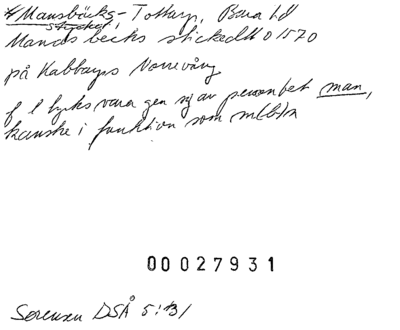 * Mansbäcks- Tottarp, Bara hd
stycket,
Mandsbecks stickedt 1570
på Kabbarps Norrevång
f l tycks vara gen sg av personbet man,
kanske i funktion som m(b)n
00027931
Sørensen DSÅ 5:131